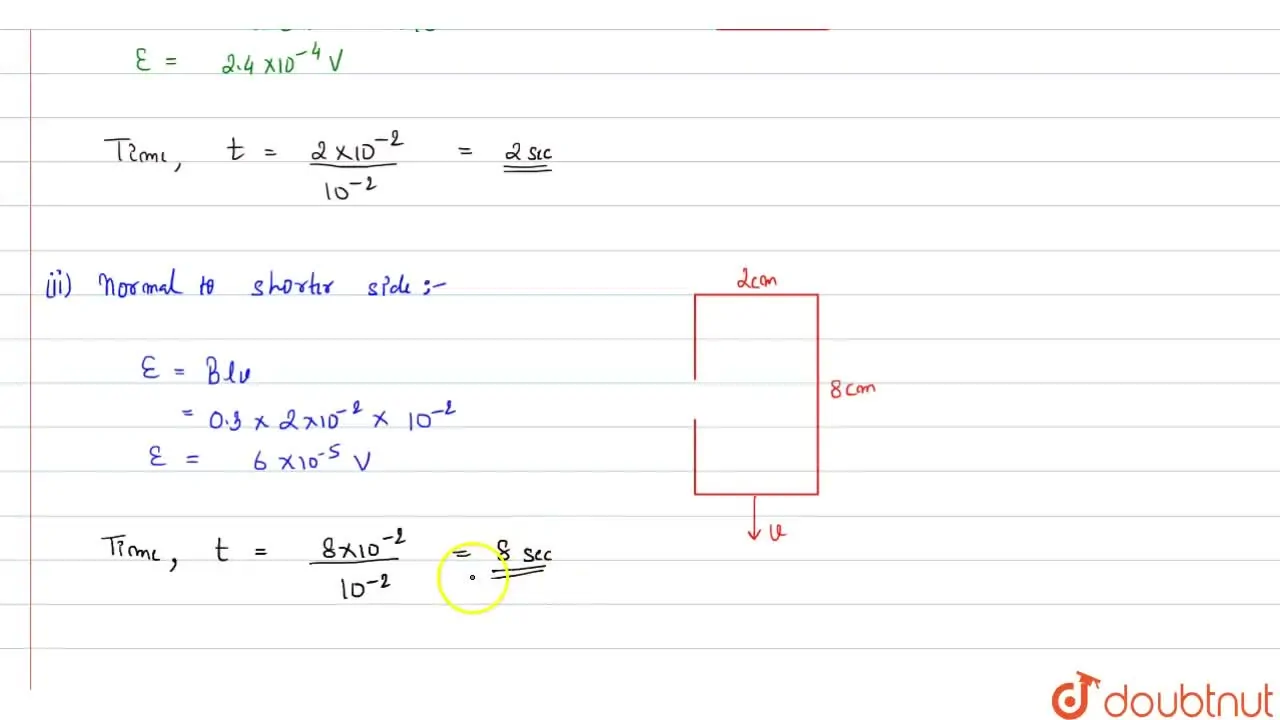 ε = 2.4 ×10⁻⁴ V
Time, t = 2 ×10⁻² / 10⁻² = 2 sec
(ii) Normal to shorter side :-
2cm
ε = Blv
8 cm
= 0.3 × 2×10⁻² × 10⁻²
ε = 6 ×10⁻⁵ V
v
Time, t = 8×10⁻² / 10⁻² = 8 sec
doubtnut